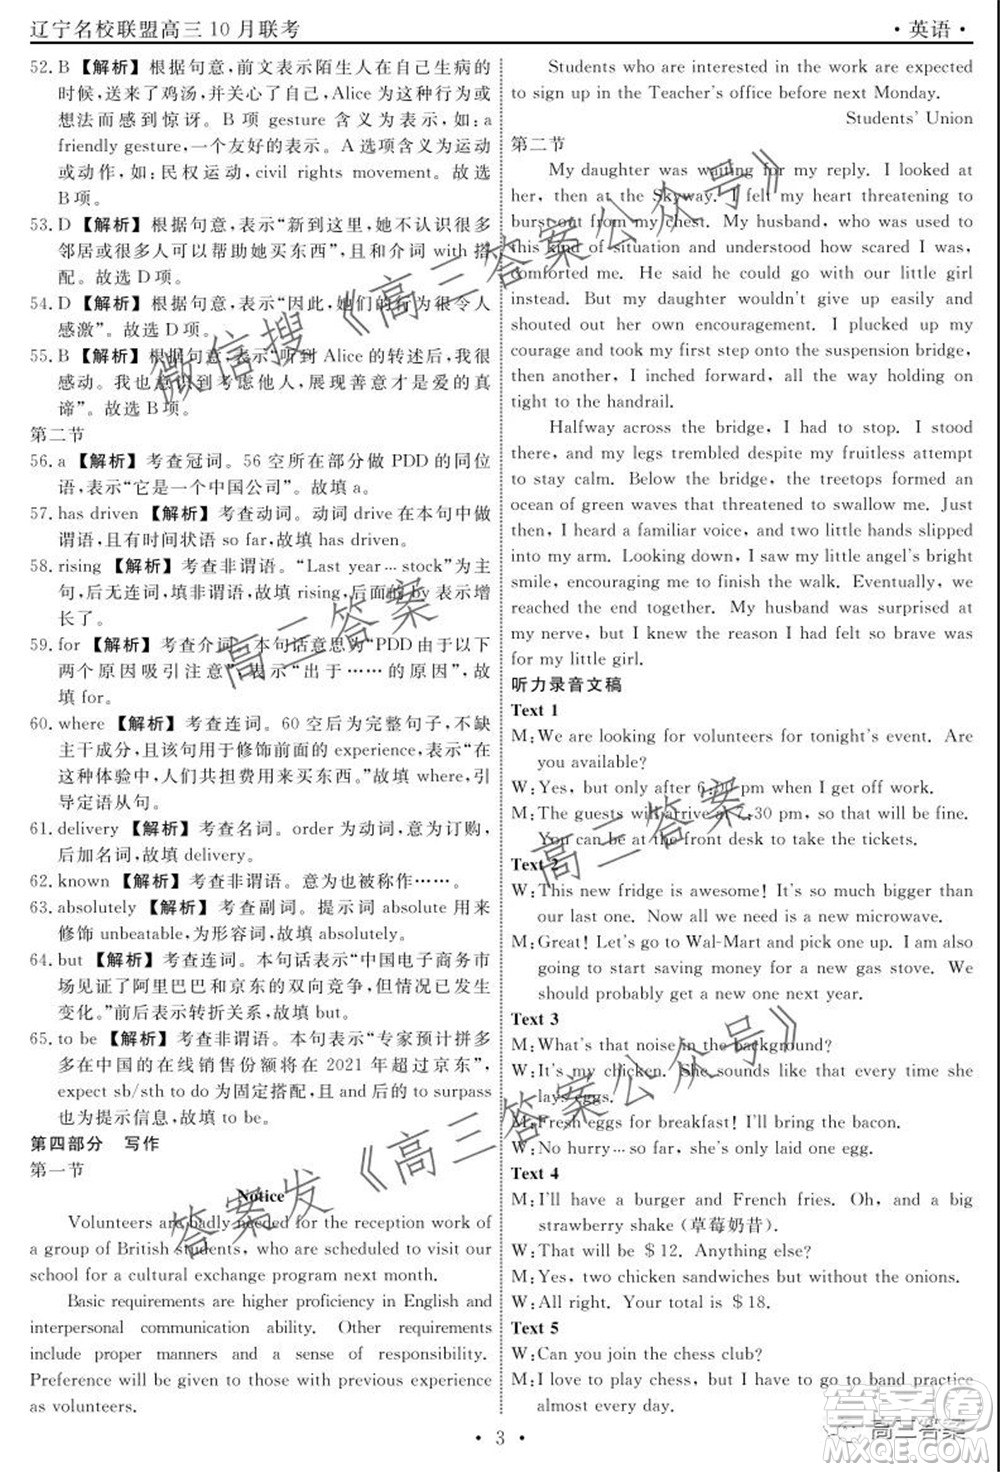 辽宁名校联盟高三10月联考
·英语·
52. B 【解析】根据句意,前文表示陌生人在自己生病的
时候,送来了鸡汤,不管怎样,Alice 为这种行为或
想法而感到惊讶。B 项 gesture 含义为表示,如:a
friendly gesture,一个友好的表示。A 选项含义为运动
或动作,如:民权运动,civil rights movement。故选
B项。
53. D 【解析】根据句意,表示“新到这里,她不认识很多
邻居或很多人可以帮助她买东西”,且和介词 with 搭
配。故选 D 项。
54. D 【解析】根据句意,表示“因此,她们的行为很令人
感激”。故选 D 项。
55. B 【解析】根据句意,表示“听到 Alice 的转述后,我很
感动。我也意识到考虑他人,展现善意才是爱的真
谛”。故选 B 项。
第二节
56. a 【解析】考查冠词。56 空所在部分做 PDD 的同位
语,表示“它是一个中国公司”。故填 a。
57. has driven 【解析】考查动词。动词 drive 在本句中做
谓语,且有时间状语 so far,故填 has driven。
58. rising 【解析】考查非谓语。“Last year…stock”为主
句,后无连词,填非谓语,故填 rising,后面的 by 表示增
长了。
59. for 【解析】考查介词。本句话意思为“PDD 由于以下
两个原因吸引注意”,表示“出于……的原因”,故
填 for。
60. where 【解析】考查连词。60 空后为完整句子,不缺
主干成分,且该句用于修饰前面的 experience,表示“在
这种体验中,人们共担费用来买东西。”故填 where,引
导定语从句。
61. delivery 【解析】考查名词。order 为动式,意为订购,
后加名词,故填 delivery。
62. known 【解析】考查非谓语。意为也被称作……。
63. absolutely 【解析】考查副词。提示词 absolute 用来
修饰 unbeatable,为形容词,故填 absolutely。
64. but 【解析】考查连词。本句话表示“中国电子商务市
场见证了阿里巴巴和京东的双向竞争,但现在情况有
变化”。前后表示转折关系,故填 but。
65. to be 【解析】考查非谓语。本句表示“专家预计拼多
多在中国的在线销售份额将在 2021 年超过京东”,
expect sb/sth to do 为固定搭配,且 to surpass
也为提示信息,故填 to be。
第四部分 写作
第一节
Notice
Volunteers are badly needed for the reception work of
a group of British students, who are scheduled to visit our
school for a cultural exchange program next month.
Basic requirements are higher proficiency in English and
interpersonal communication ability. Other requirements
include proper manners and a sense of responsibility.
Preference will be given to those with previous experience
as volunteers.
Students who are interested in the work are expected
to sign up in the Teacher's office before next Monday.
Students' Union
第二节
My daughter was waiting for my reply. I looked at
her, then at the Skyway. I felt my heart threatening to
burst out from my chest. My husband, who was used to
this kind of situation and understood how scared I was,
comforted me. He said he could go with our little girl
instead. But my daughter wouldn't give up easily and
shouted out her own encouragement. I plucked up my
courage and took my first step onto the suspension bridge,
then another, I inched forward, all the way holding on
tight to the handrail.
Halfway across the bridge, I had to stop. I stood
there, and my legs trembled despite my fruitless attempt
to stay calm. Below the bridge, the treetops formed an
ocean of green waves that threatened to swallow me. Just
then, I heard a familiar voice, and two little hands slipped
into my arm. Looking down, I saw my little angel's bright
smile, encouraging me to finish the walk. Eventually, we
reached the end together. My husband was surprised at
my nerve, but I knew the reason I had felt so brave was
for my little girl.
听力录音文稿
Text 1
M: We are looking for volunteers for tonight's event. Are
you available?
W: Yes, but only after 6:00 pm when I get off work.
M: The guests will arrive at 7:30 pm, so that will be fine.
You can be at the front desk to take the tickets.
Text 2
W: This new fridge is awesome! It's so much bigger than
our last one. Now all we need is a new microwave.
M: Great! Let's go to Wal-Mart and pick one up. I am also
going to start saving money for a new gas stove. We
should probably get a new one next year.
Text 3
M: What's that noise in the backyard?
W: It's my chicken. She sounds like that every time she
lays eggs.
M: Fresh eggs for breakfast! I'll make some bacon.
W: No hurry…so far, she's only laid one egg.
Text 4
M: I'll have a burger and French fries. Oh, and a big
strawberry shake (草莓奶昔).
W: That will be $12. Anything else?
M: Yes, two chicken sandwiches but without the onions.
W: All right. Your total is $18.
Text 5
W: Can you join the chess club?
M: I love to play chess, but I have to go to band practice
almost every day.
· 3 ·
微信搜《高三答案公众号》
高三答案
高三答案
答案发《高三答案公众号》
高三答案
答案圈
MXQE.COM